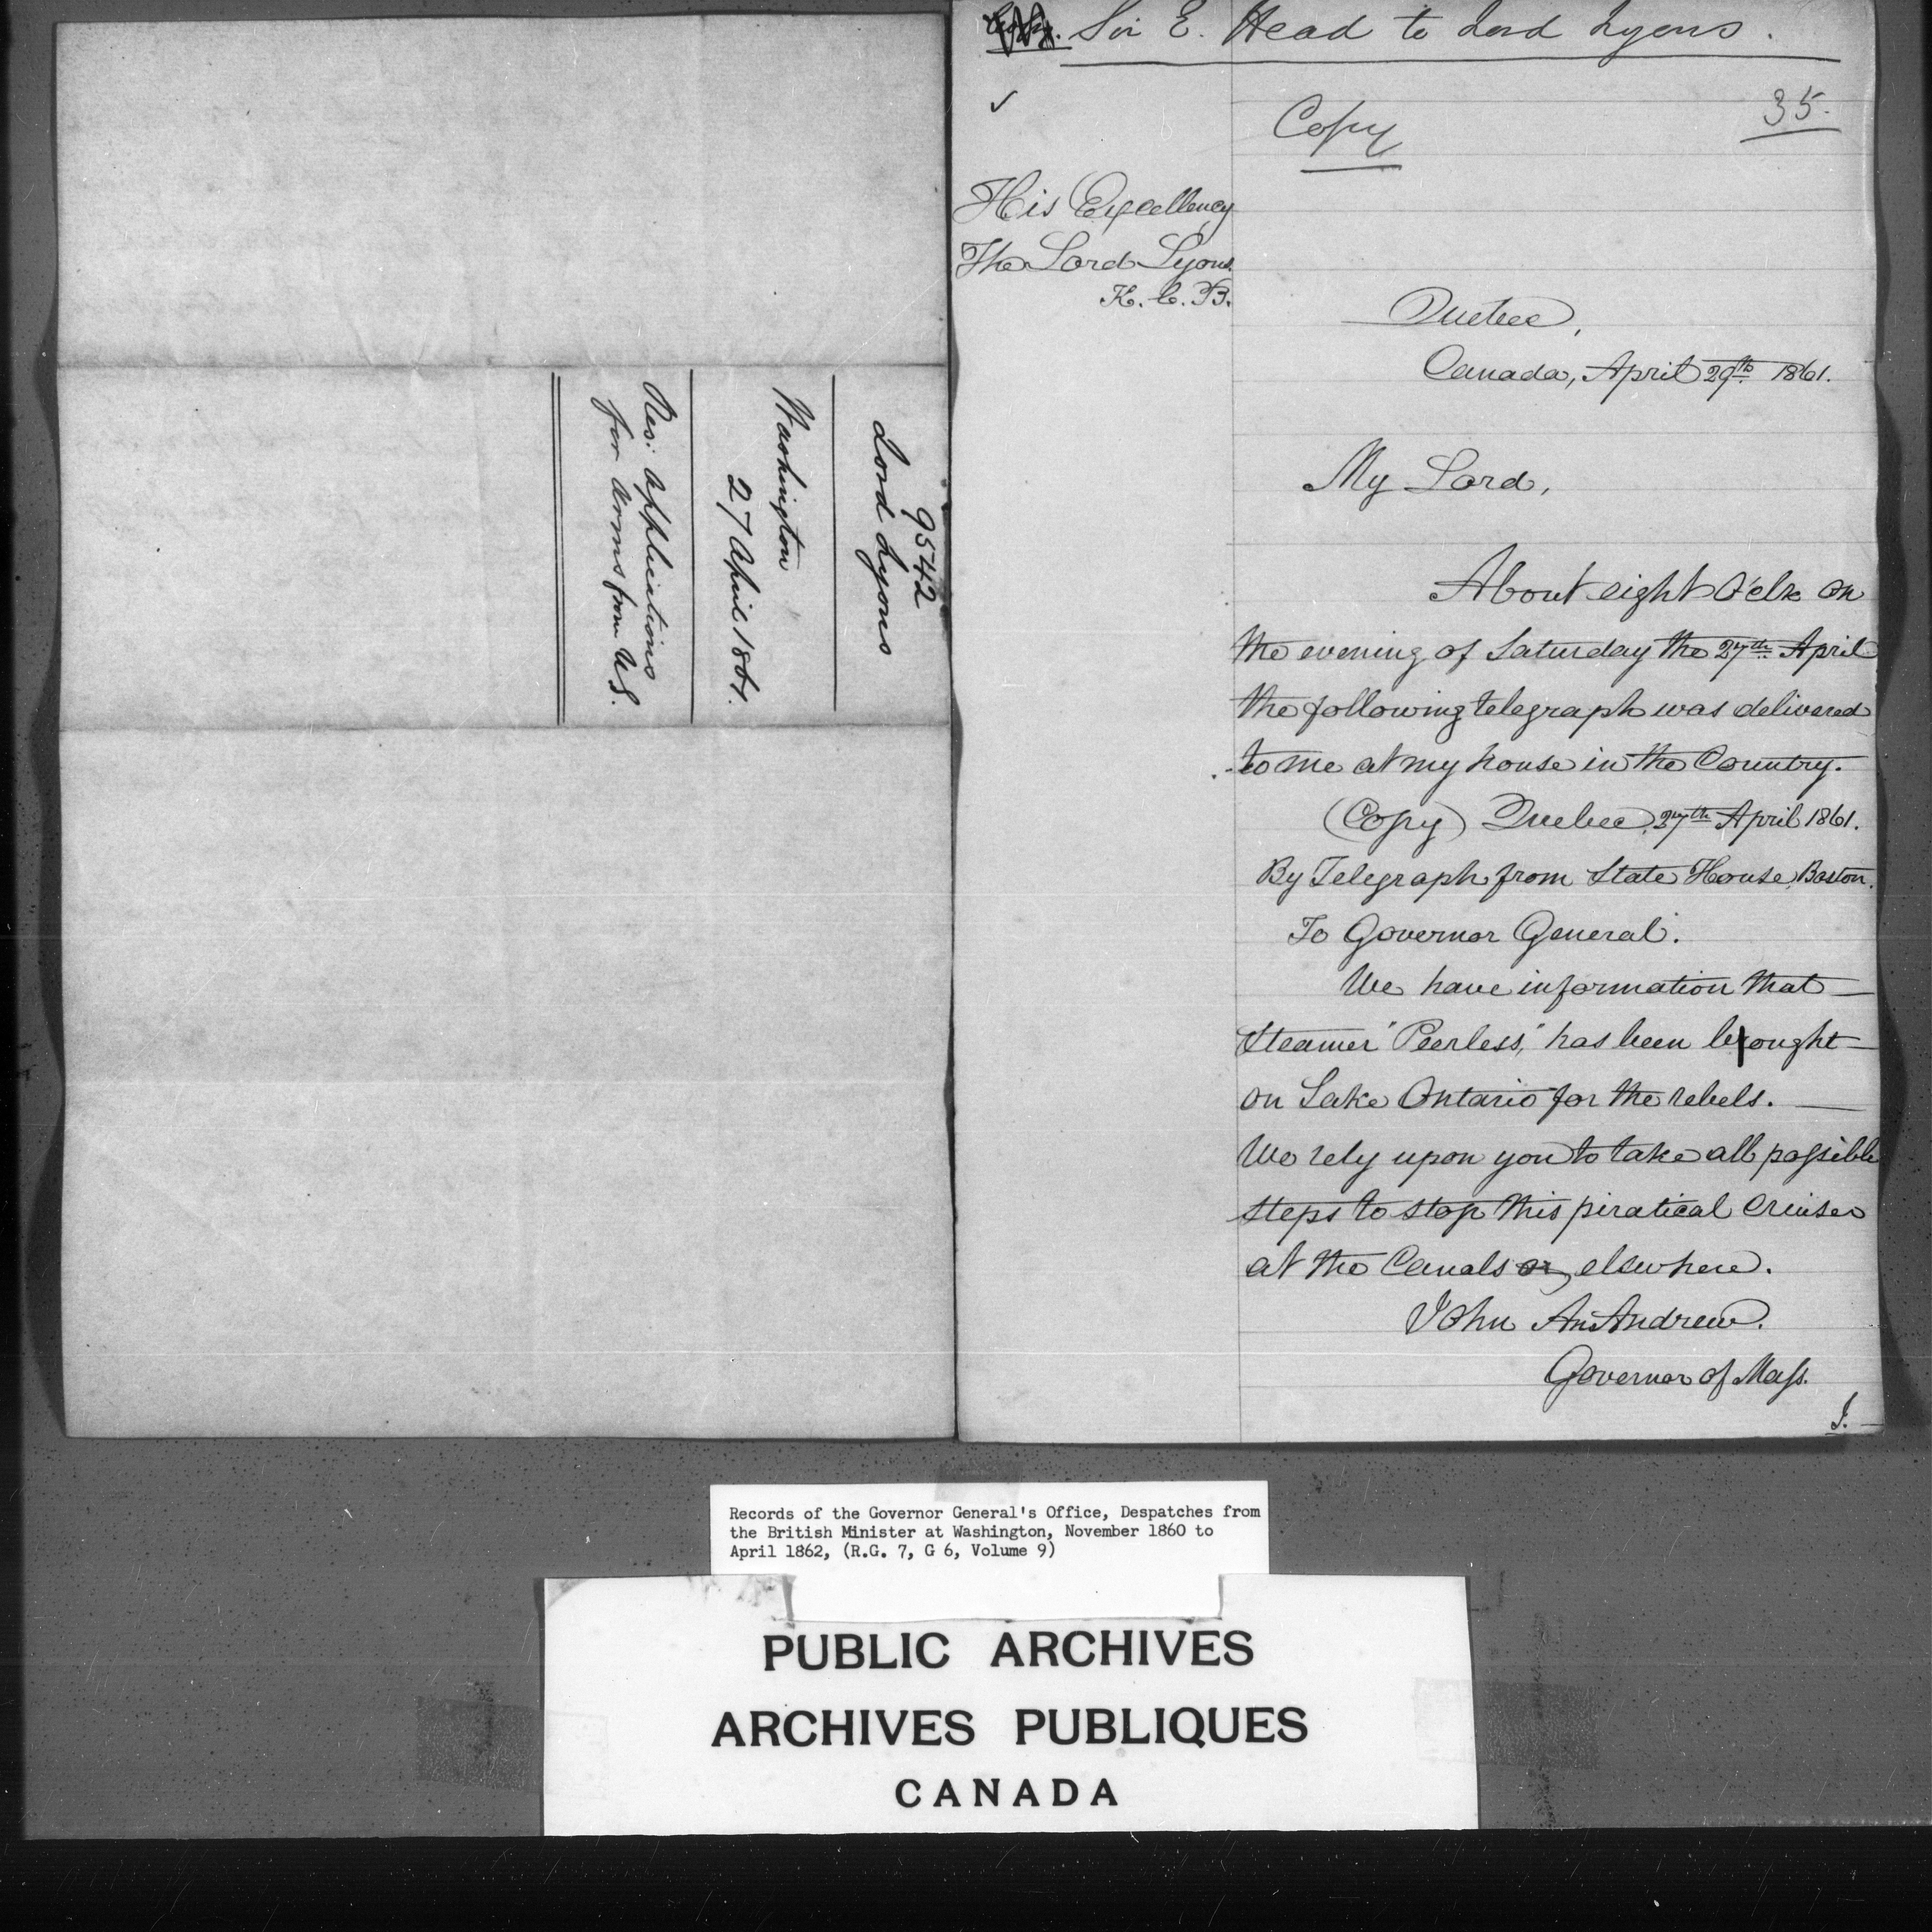 9542
Lord Lyons
Washington
27 April 1861.
Res: applications
for arms from U.S.
Sir E. Head to Lord Lyons.
✓
Copy
35.
His Excellency
The Lord Lyons
K.C.B.
Quebec,
Canada, April 29th 1861.
My Lord,
About eight O'clk on
the evening of Saturday the 27th April
the following telegraph was delivered
to me at my house in the Country.
(Copy) Quebec, 27th April 1861.
By Telegraph from State House, Boston.
To Governor General.
We have information that
Steamer "Peerless," has been bought
on Lake Ontario for the rebels.
We rely upon you to take all possible
steps to stop this piratical cruiser
at the Canals or elsewhere.
John A. Andrew.
Governor of Mass.
I.
Records of the Governor General's Office, Despatches from
the British Minister at Washington, November 1860 to
April 1862, (R.G. 7, G 6, Volume 9)
PUBLIC ARCHIVES
ARCHIVES PUBLIQUES
CANADA